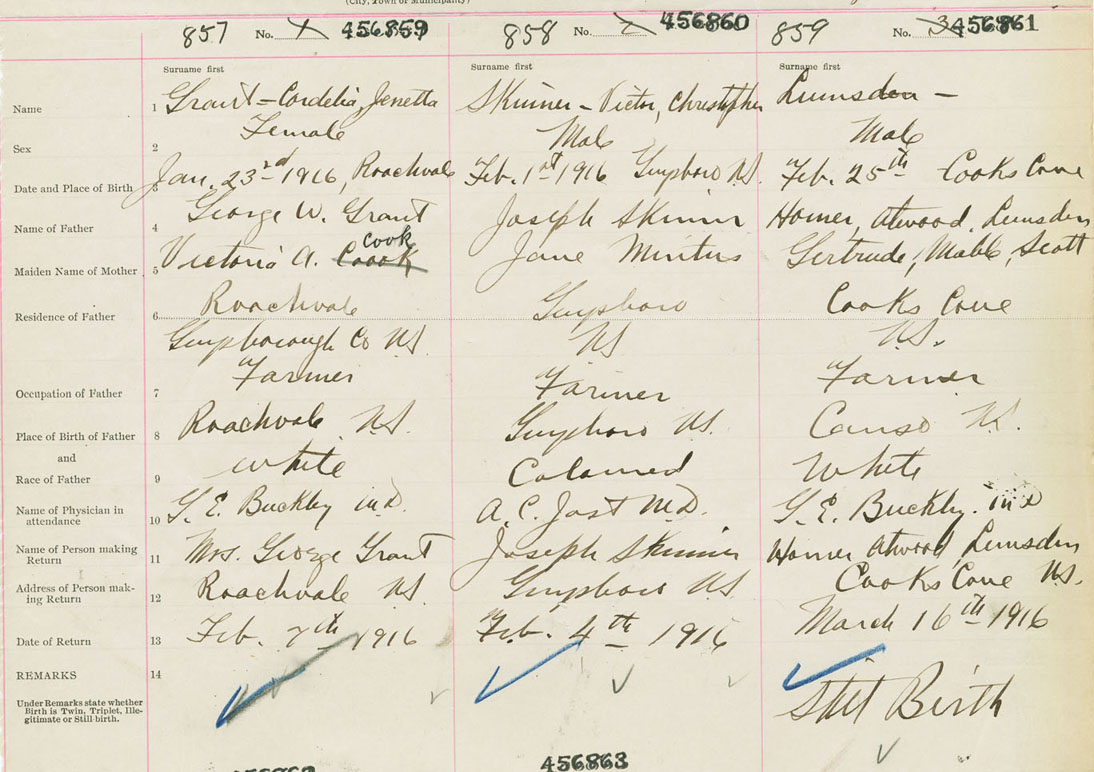 (City, Town or Municipality)
857 No. 1 456859 858 No. 2 456860 859 No. 3 456861
Surname first Surname first Surname first
Name 1 Grant - Cordelia, Jenetta Skinner - Victor, Christopher Lumsden -
Sex 2 Female Male Male
Date and Place of Birth 3 Jan. 23rd 1916, Roachvale Feb. 1st 1916 Guysboro N.S. Feb. 25th Cooks Cove
Name of Father 4 George W. Grant Joseph Skinner Homer, Atwood, Lumsden
cook
Maiden Name of Mother 5 Victoria A. Coook Jane Mintus Gertrude, Mable, Scott
Residence of Father 6 Roachvale Guysboro Cooks Cove
Guysborough Co NS NS N.S.
Occupation of Father 7 Farmer Farmer Farmer
Place of Birth of Father 8 Roachvale N.S. Guysboro N.S. Canso N.S.
and
Race of Father 9 White Coloured White
Name of Physician in
attendance 10 G. E. Buckley M.D. A. C. Jost M.D. G. E. Buckley. M.D
Name of Person making
Return 11 Mrs. George Grant Joseph Skinner Homer Atwood Lumsden
Address of Person mak-
ing Return 12 Roachvale N.S. Guysboro N.S. Cooks Cove N.S.
Date of Return 13 Feb. 7th 1916 Feb. 4th 1916 March 16th 1916
REMARKS 14
Under Remarks state whether
Birth is Twin, Triplet, Ille-
gitimate or Still-birth.
Still Birth
456863